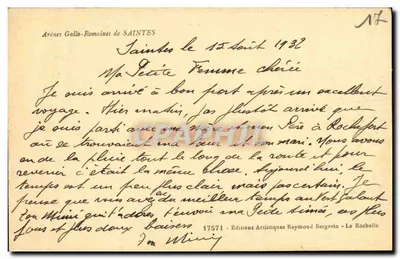 17
Arènes Gallo-Romaines de SAINTES
Saintes le 15 Août 1932
Ma Petite Femme chérie
Je suis arrivé à bon port après un excellent
voyage. Hier matin, pas plustôt arrivé que
je suis parti avec mon Père à Rochefort
où se trouvaient une et son mari. Nous avons
eu de la pluie tout le long de la route et pour
revenir c'était la même chose. Aujourd'hui, le
temps est un peu plus clair mais pas certain. Je
pense que vous avez du meilleur temps
Ton Mimi qui t'adore t'envoie ses plus
fous et plus doux baisers
Ton Mimi
17571 - Editions Artistiques Raymond Bergevin - La Rochelle
CPAPHIL